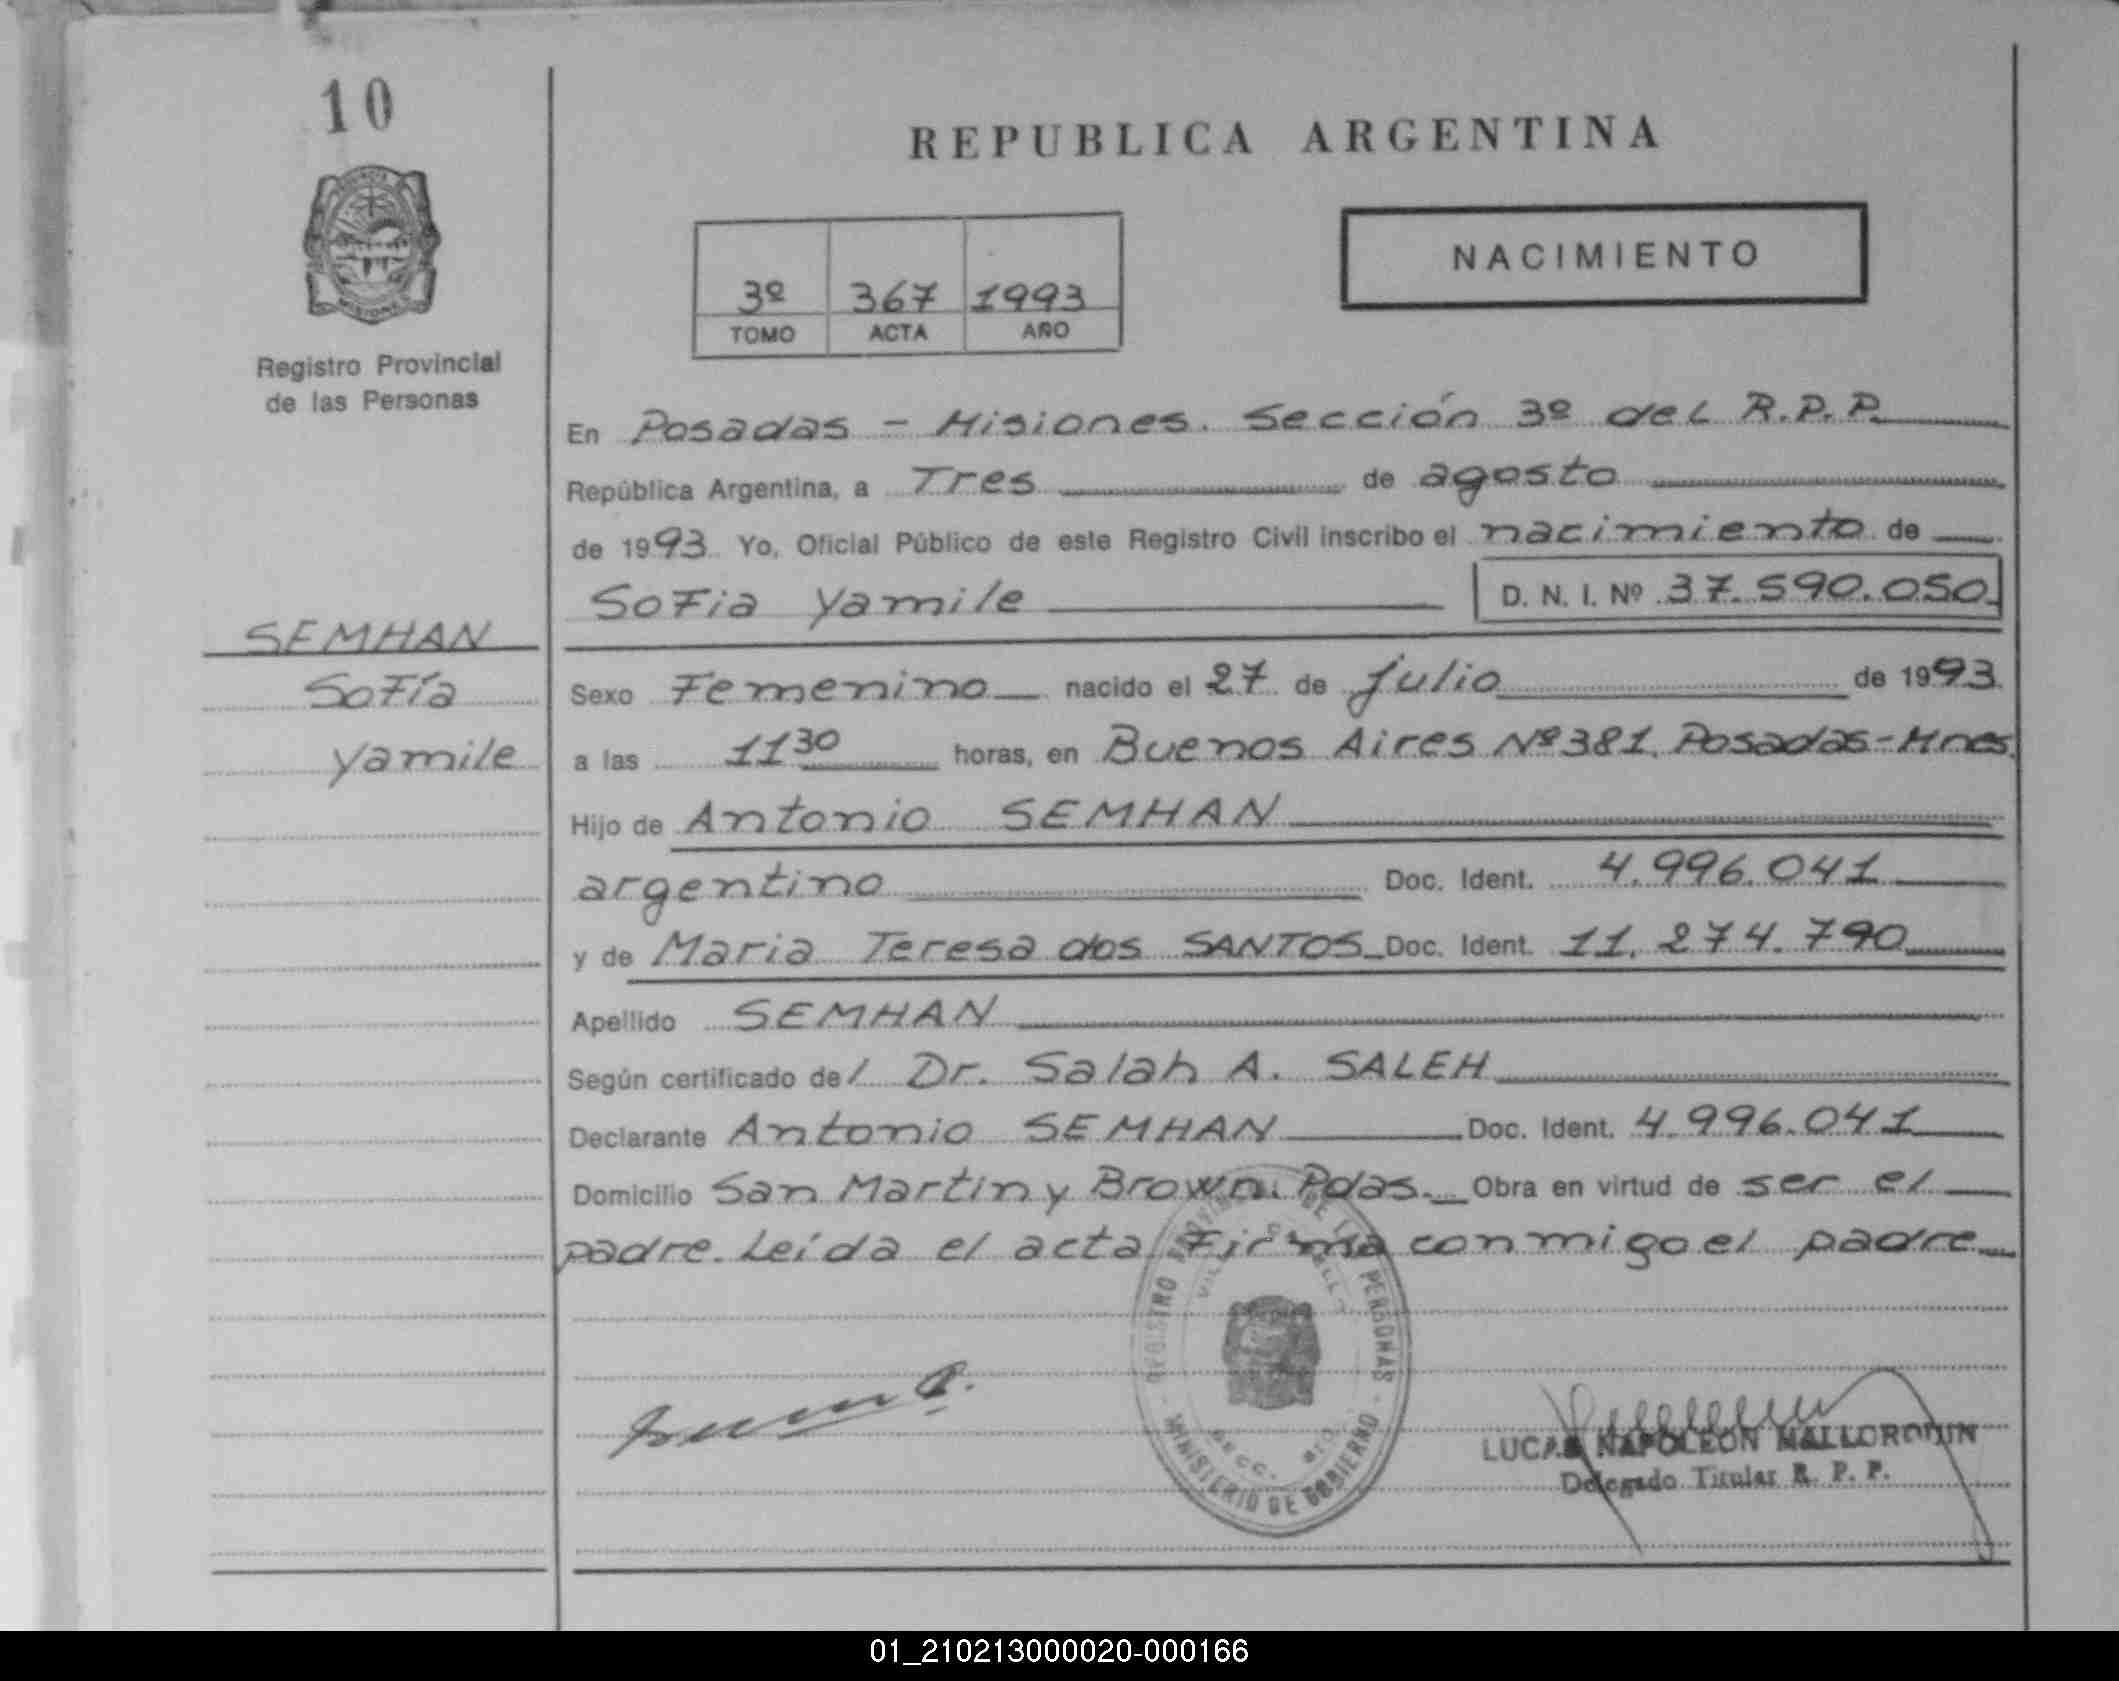 10
REPUBLICA ARGENTINA
NACIMIENTO
3º 367 1993
TOMO ACTA AÑO
Registro Provincial
de las Personas
En Posadas - Misiones. Sección 3º del R.P.P.
República Argentina, a Tres de agosto
de 1993. Yo, Oficial Público de este Registro Civil inscribo el nacimiento de
Sofia Yamile D. N. I. Nº 37.590.050.
SEMHAN
Sofía
Yamile
Sexo Femenino nacido el 27 de julio de 1993.
a las 11 30 horas, en Buenos Aires Nº 381. Posadas-Mnes.
Hijo de Antonio SEMHAN
argentino Doc. Ident. 4.996.041
y de Maria Teresa dos SANTOS Doc. Ident. 11.274.790
Apellido SEMHAN
Según certificado del Dr. Salah A. SALEH
Declarante Antonio SEMHAN Doc. Ident. 4.996.041
Domicilio San Martin y Brown. Pdas. Obra en virtud de ser el
padre. Leída el acta firma conmigo el padre
REGISTRO PROVINCIAL DE LAS PERSONAS
SECC.
MINISTERIO DE GOBIERNO
LUCAS NAPOLEON
Delegado Titular R. P. P.
01_210213000020-000166